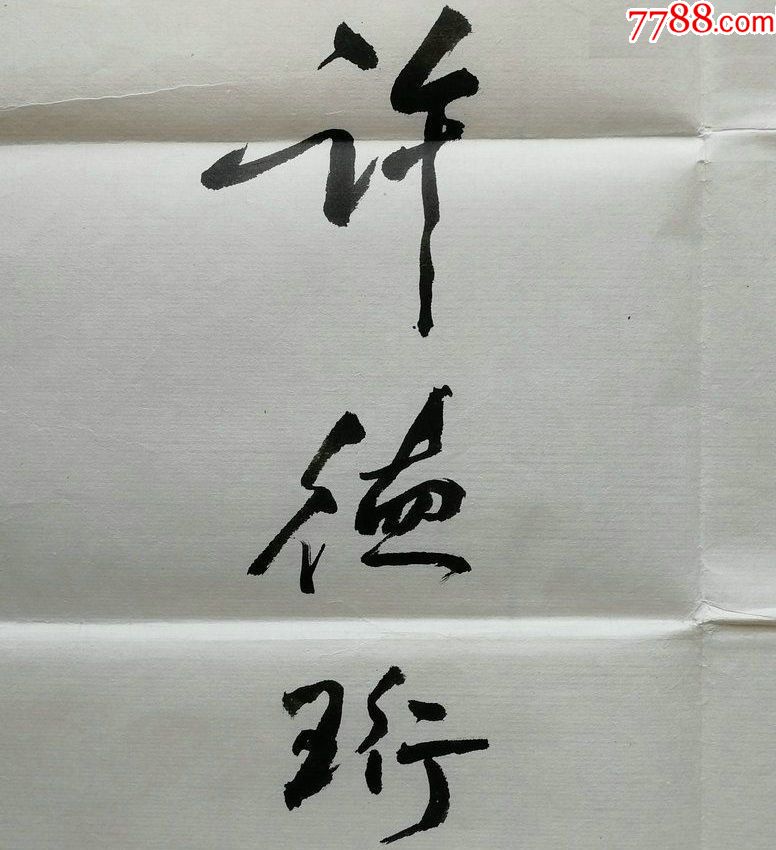 7788.com
许德珩